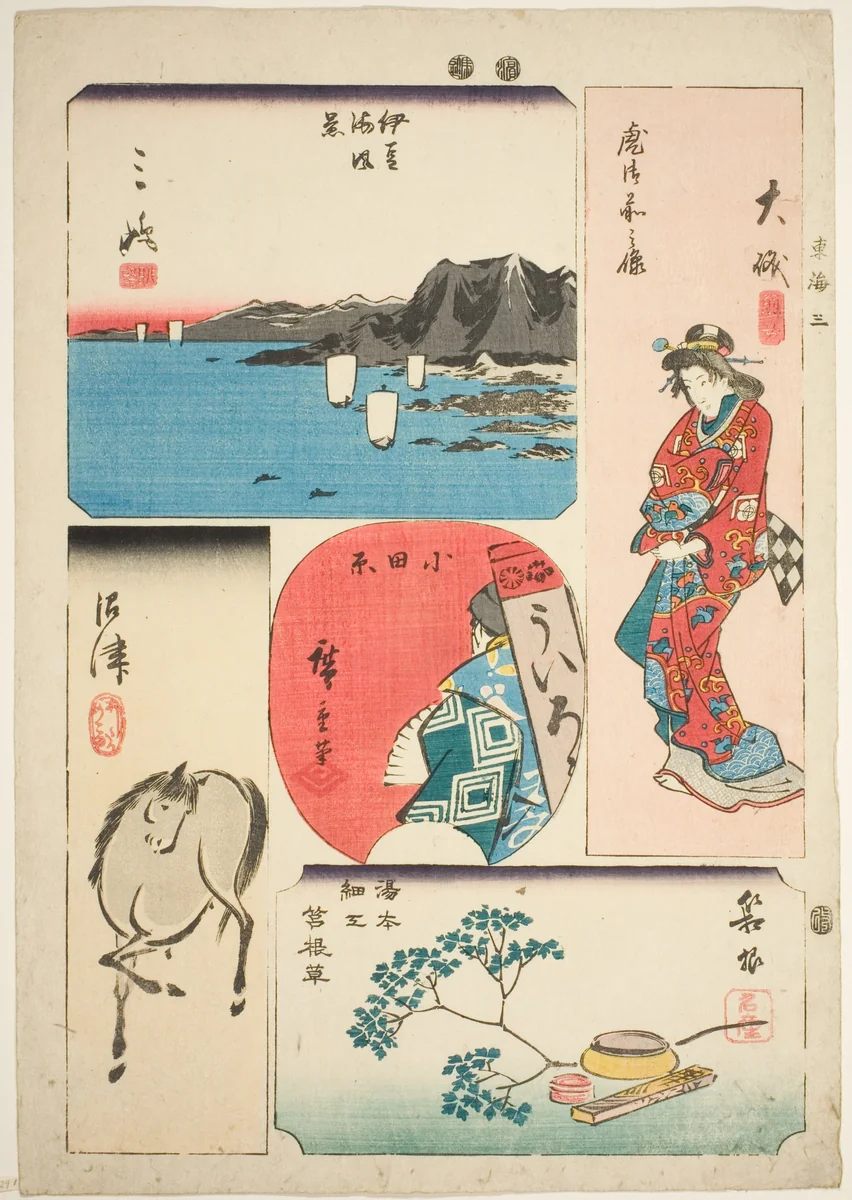 東海三
大磯
虎御前之像
伊豆
海風
景
三嶋
小田原
ういろう
廣重筆
沼津
箱根
名産
湯本
細工
筥根草